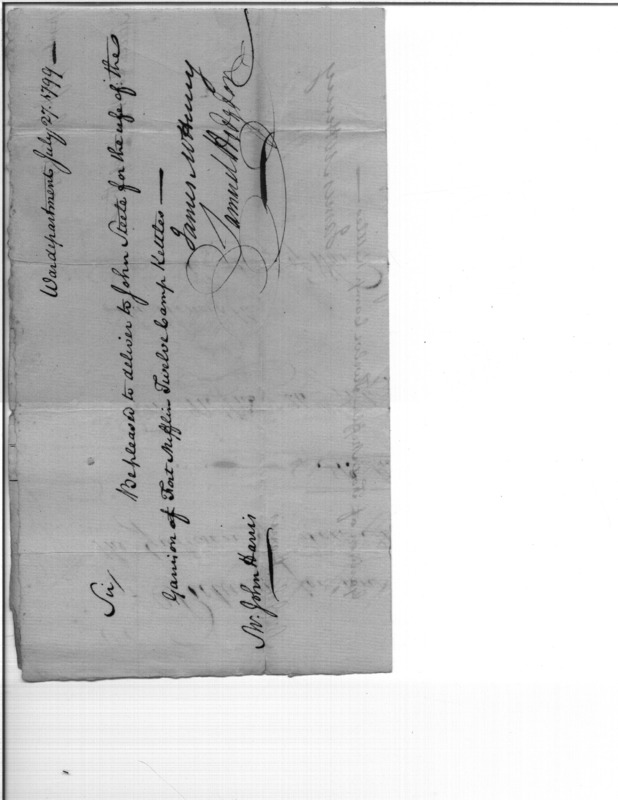 War department July 27. 1799
Sir,
Be pleased to deliver to John Steele for the use of the
Garrison of Fort Mifflin Twelve Camp Kettles
James McHenry
Samuel Hodgdon
Mr. John Harris